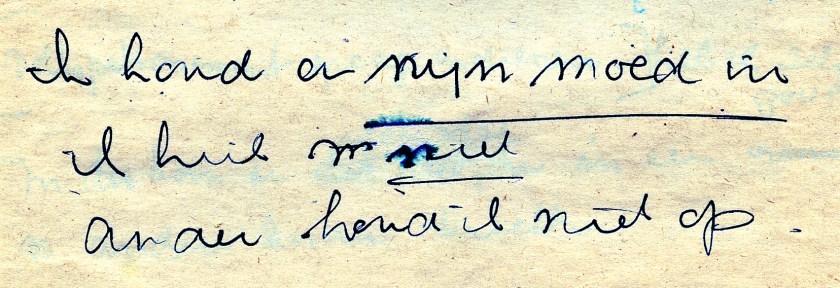 Ik houd er mijn moed in
ik huil niet
Anders houd ik niet op.